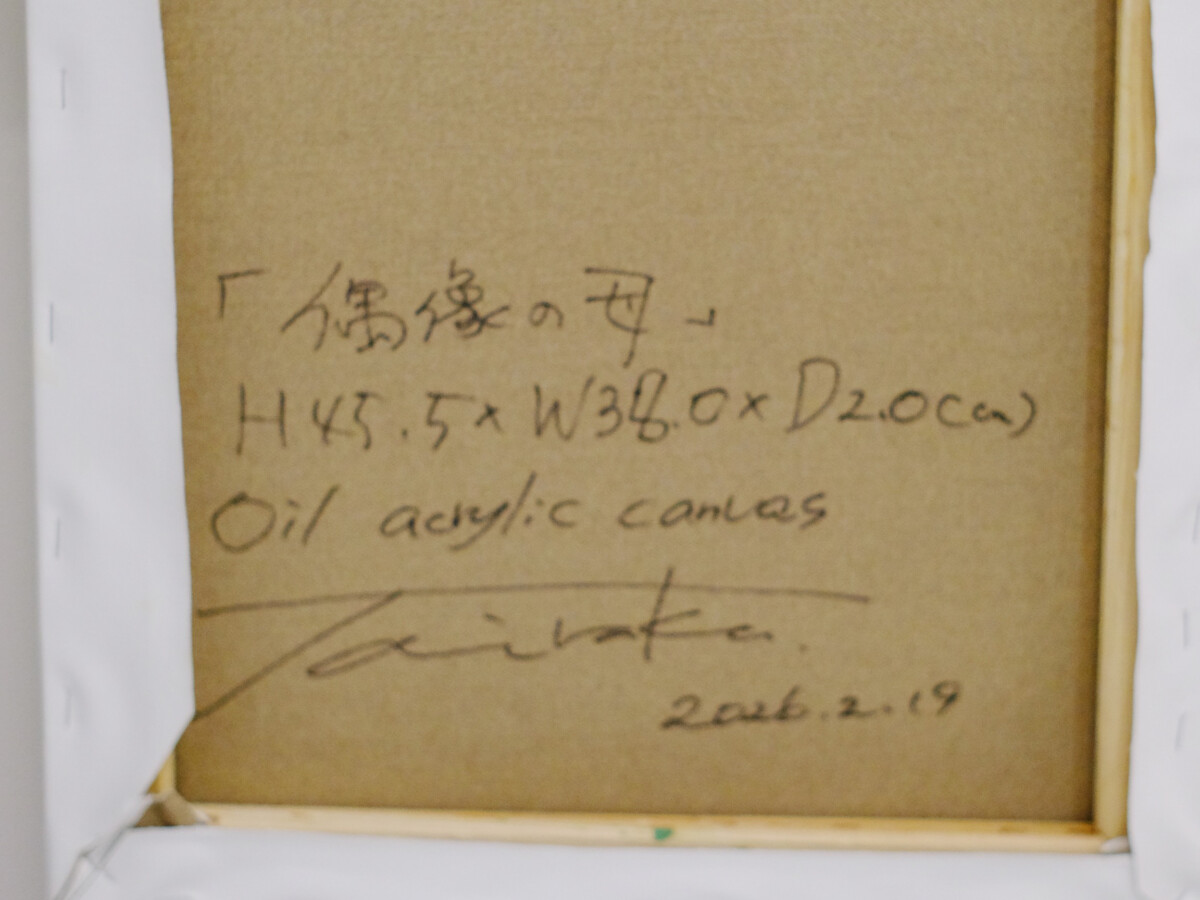 「偶像の母」
H45.5×W38.0×D2.0(cm)
Oil acrylic canvas
Tairaka.
2026.2.19